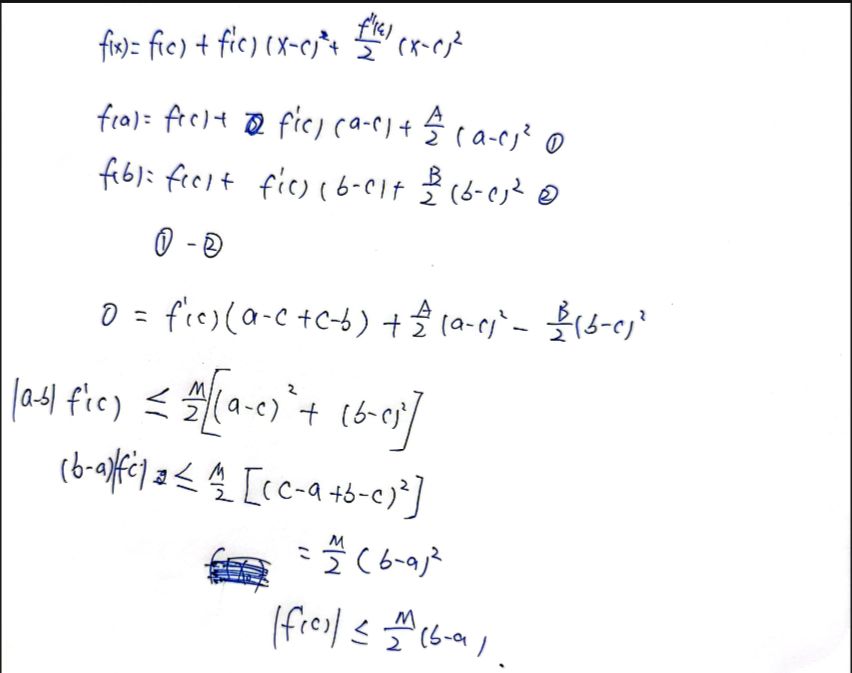 f(x) = f(c) + f'(c) (x-c)² + f''(ξ)/2 (x-c)²
f(a) = f(c) + f'(c) (a-c) + A/2 (a-c)² ①
f(b) = f(c) + f'(c) (b-c) + B/2 (b-c)² ②
① - ②
0 = f'(c) (a-c+c-b) + A/2 (a-c)² - B/2 (b-c)²
|a-b| f'(c) ≤ M/2 [(a-c)² + (b-c)²]
(b-a)|f'(c)| ≤ M/2 [(c-a+b-c)²]
= M/2 (b-a)²
|f'(c)| ≤ M/2 (b-a).